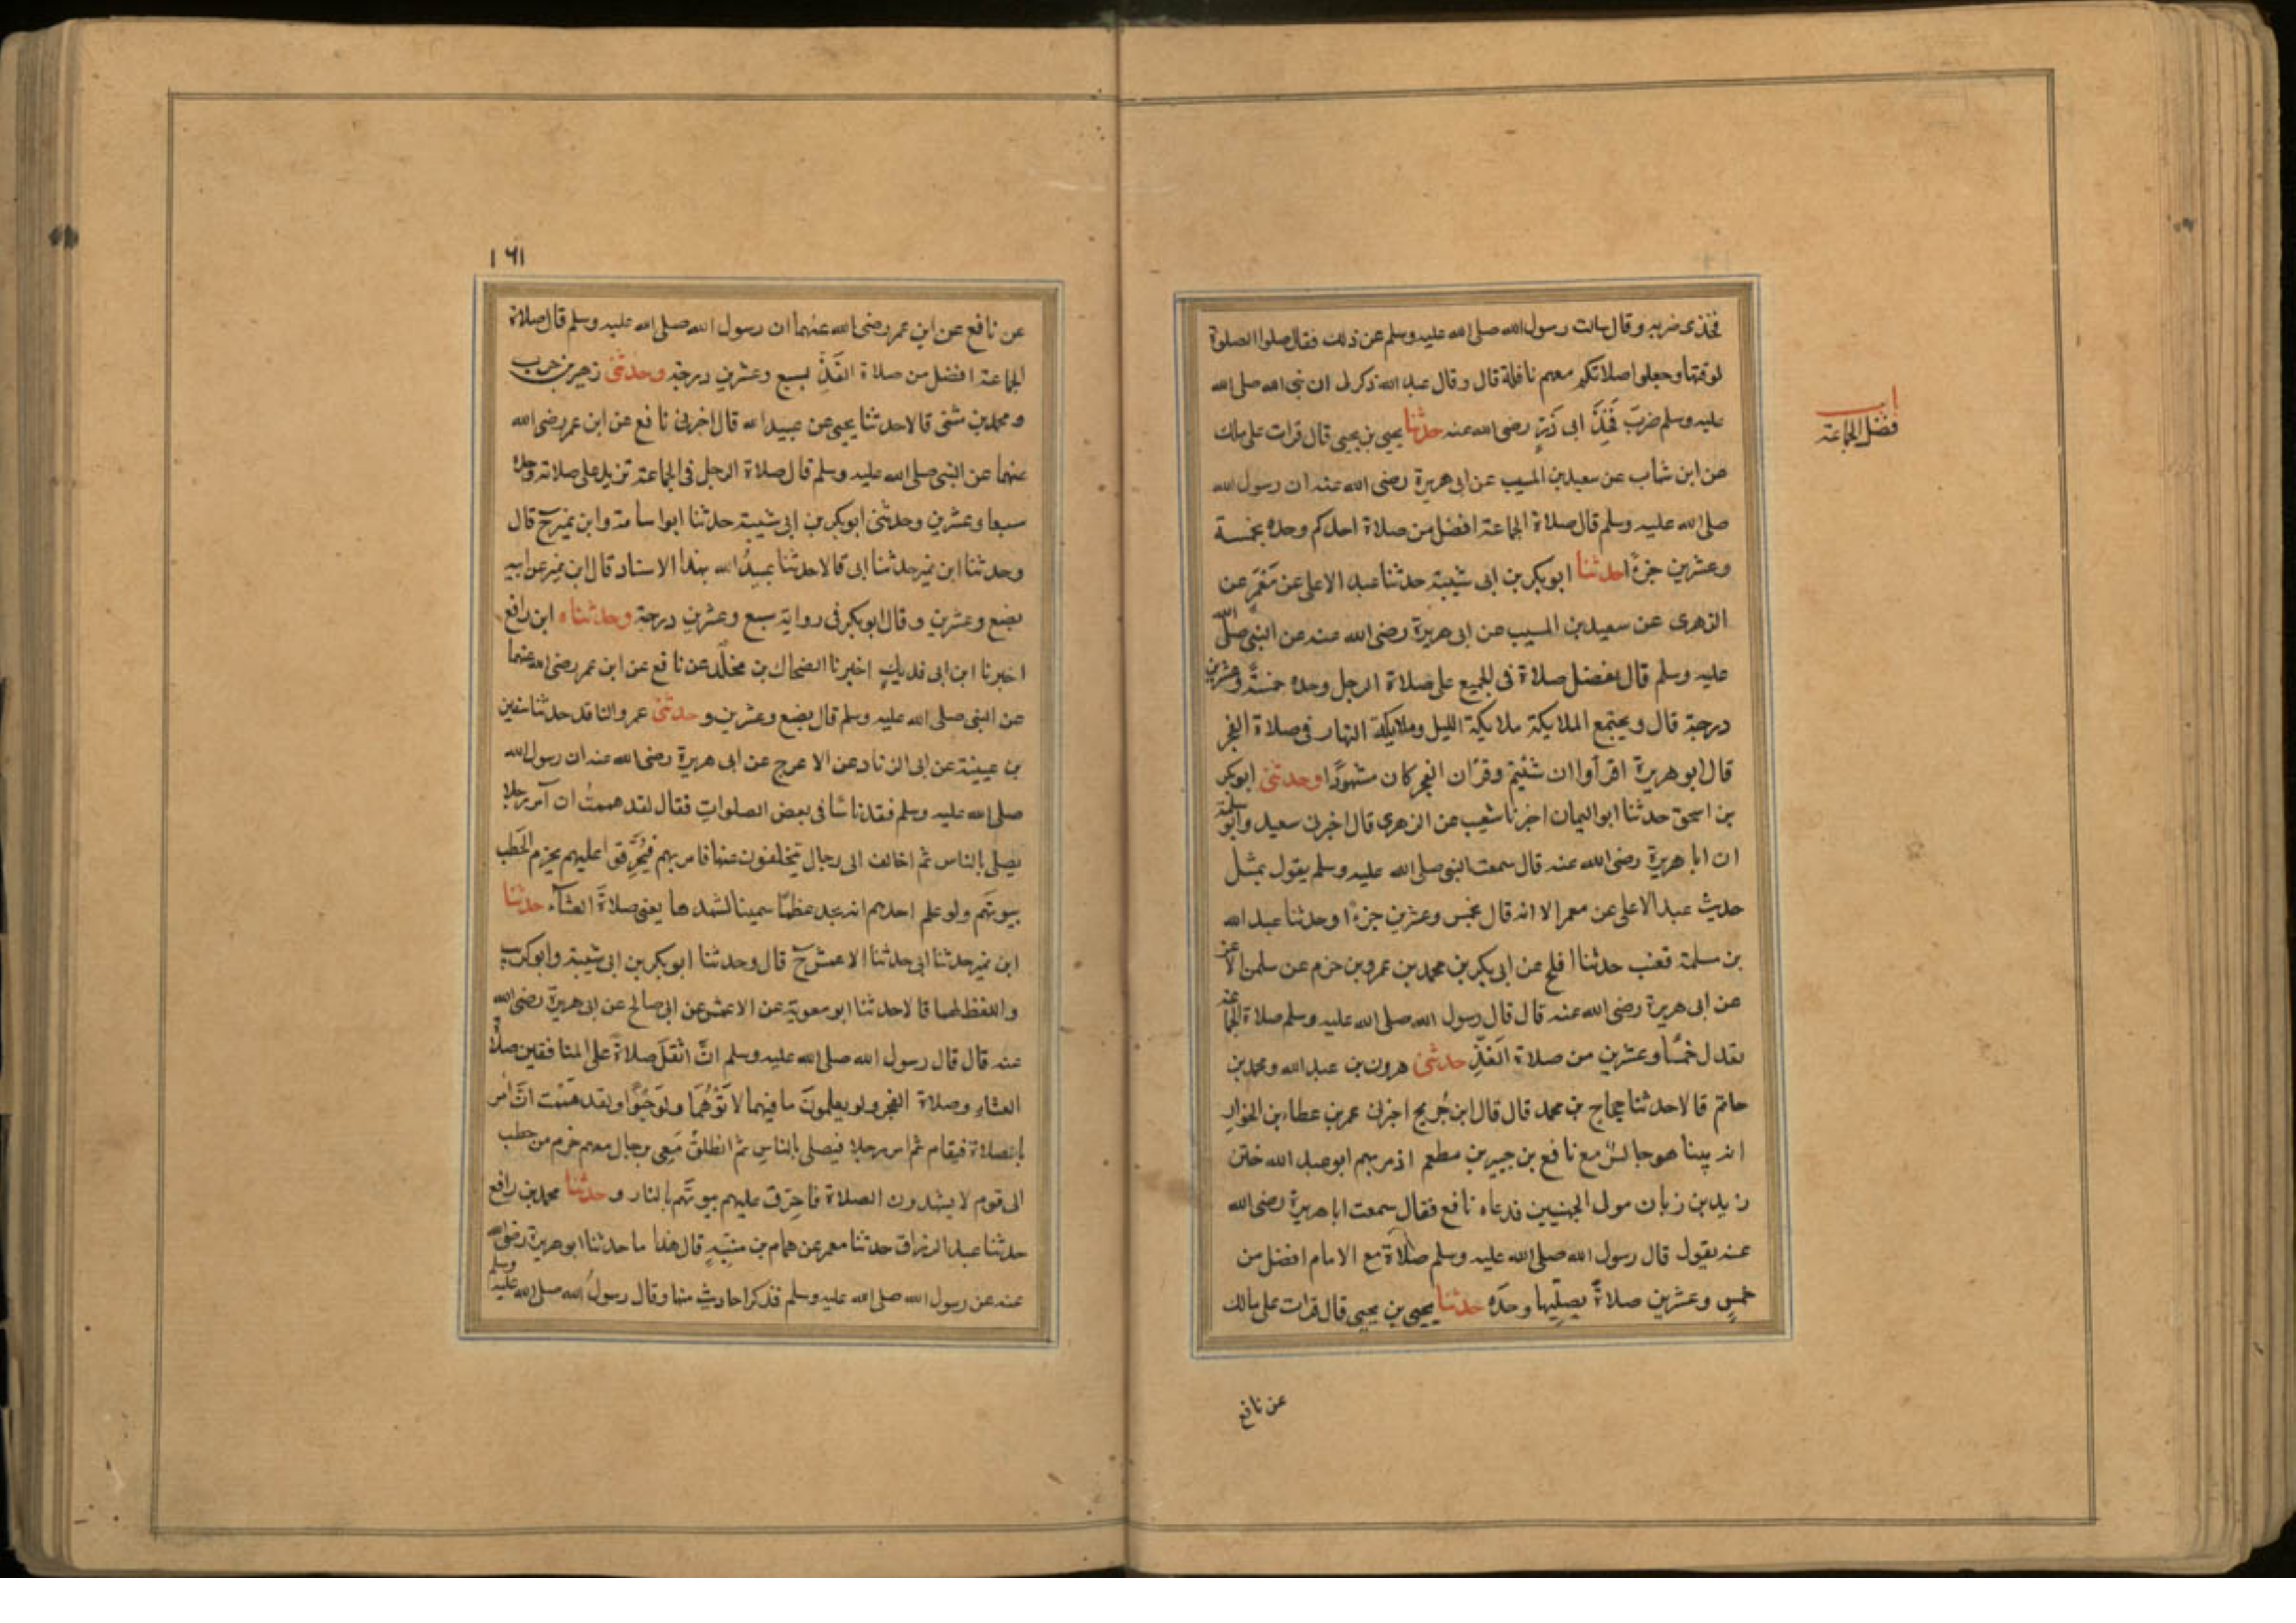 فخذى ضربه وقال سالت رسول الله صلى الله عليه وسلم عن ذلك فقال صلوا الصلوة
لوقتها وجعلوا صلاتكم معهم نافلة قال وقال عبد الله ذكر لى ان نبى الله صلى الله
عليه وسلم ضرَبَ فَخِذَ ابى ذَرٍّ رضى الله عنه حدثنا يحيى بن يحيى قال قرات على مالك
عن ابن شهاب عن سعيد بن المسيب عن ابى هريرة رضى الله عنه ان رسول الله
صلى الله عليه وسلم قال صلاة الجماعة افضل من صلاة احدكم وحده بخمسة
وعشرين جزءًا حدثنا ابو بكر بن ابى شيبة حدثنا عبد الاعلى عن مَعْمَر عن
الزهرى عن سعيد بن المسيب عن ابى هريرة رضى الله عنه عن النبى صلى الله
عليه وسلم قال تفضل صلاة فى الجميع على صلاة الرجل وحده خمسةً وعشرين
درجة قال ويجتمع الملايكة ملايكة الليل وملايكة النهار فى صلاة الفجر
قال ابو هريرة اقرأوا ان شئتم وقرآن الفجر كان مشهودًا وحدثنى ابو بكر
بن اسحق حدثنا ابو اليمان اخبرنا شعيب عن الزهرى قال اخبرنى سعيد وابو سلمة
ان ابا هريرة رضى الله عنه قال سمعت النبى صلى الله عليه وسلم يقول بمثل
حديث عبد الاعلى عن معمر الا انه قال بخمس وعشرين جزءًا وحدثنا عبد الله
بن مسلمة قعنب حدثنا افلح عن ابى بكر بن محمد بن عمرو بن حزم عن سلمن الاغر
عن ابى هريرة رضى الله عنه قال قال رسول الله صلى الله عليه وسلم صلاة الجماعة
تعدل خمسًا وعشرين من صلاة الفَذِّ حدثنى هرون بن عبد الله ومحمد بن
حاتم قالا حدثنا حجاج بن محمد قال قال ابن جُريج اخبرنى عمر بن عطاء بن الخوار
انه بينا هو جالسٌ مع نافع بن جبير بن مطعم اذ مر بهم ابو عبد الله ختن
زيد بن زبان مولى الجهنيين فدعاه نافع فقال سمعت ابا هريرة رضى الله
عنه يقول قال رسول الله صلى الله عليه وسلم صلاة مع الامام افضل من
خمسٍ وعشرين صلاةً يصلّيها وحدَه حدثنا يحيى بن يحيى قال قرات على مالك
عن نافع
باب
فضل الجماعة
١٦١
عن نافع عن ابن عمر رضى الله عنهما ان رسول الله صلى الله عليه وسلم قال صلاة
الجماعة افضل من صلاة الفَذِّ بسبع وعشرين درجة وحدثنى زهير بن حرب
ومحمد بن مثنى قالا حدثنا يحيى عن عبيد الله قال اخبرنى نافع عن ابن عمر رضى الله
عنهما عن النبى صلى الله عليه وسلم قال صلاة الرجل فى الجماعة تزيد على صلاته وحده
سبعا وعشرين وحدثنى ابو بكر بن ابى شيبة حدثنا ابو اسامة وابن نمير ح قال
وحدثنا ابن نمير حدثنا ابى قالا حدثنا عبيدُ الله بهذا الاسناد قال ابن نمير عن ابيه
بضع وعشرين وقال ابو بكر فى رواية سبع وعشرين درجة وحدثناه ابن رافع
اخبرنا ابن ابى فديك اخبرنا الضحاك بن مخلد عن نافع عن ابن عمر رضى الله عنهما
عن النبى صلى الله عليه وسلم قال بضع وعشرين وحدثنى عمرو الناقد حدثنا سفين
بن عيينة عن ابى الزناد عن الاعرج عن ابى هريرة رضى الله عنه ان رسول الله
صلى الله عليه وسلم فقد ناسًا فى بعض الصلوات فقال لقد هممتُ ان آمر رجلا
يصلى بالناس ثم اخالف الى رجال يتخلفون عنها فامر بهم فيُحرِّقوا عليهم بحزم الحَطب
بيوتهم ولو علم احدهم انه يجد عظمًا سمينا لشهدها يعنى صلاةَ العشآء حدثنا
ابن نمير حدثنا ابى حدثنا الاعمش ح قال وحدثنا ابو بكر بن ابى شيبة وابو كريب
واللفظ لهما قالا حدثنا ابو معوية عن الاعمش عن ابى صالح عن ابى هريرة رضى الله
عنه قال قال رسول الله صلى الله عليه وسلم انَّ اثقلَ صلاة على المنافقين صلاة
العشاء وصلاة الفجر ولو يعلمونَ ما فيهما لاتَوْهُمَا ولَو حَبْوًا ولقد هَمَمْت انْ آمر
بالصلاة فيقام ثم امر رجلا فيصلى بالناسِ ثم انطلق مَعِى برجال معهم حزم من حطب
الى قوم لا يشهدون الصلاة فاحرّق عليهم بيوتَهم بالنار وحدثنا محمد بن رافع
حدثنا عبد الرزاق حدثنا معمر عن همام بن منبّهٍ قال هذا ما حدثنا ابو هريرة رضى الله
عنه عن رسول الله صلى الله عليه وسلم فذكر احاديث منها وقال رسولُ الله صلى الله عليه وسلم